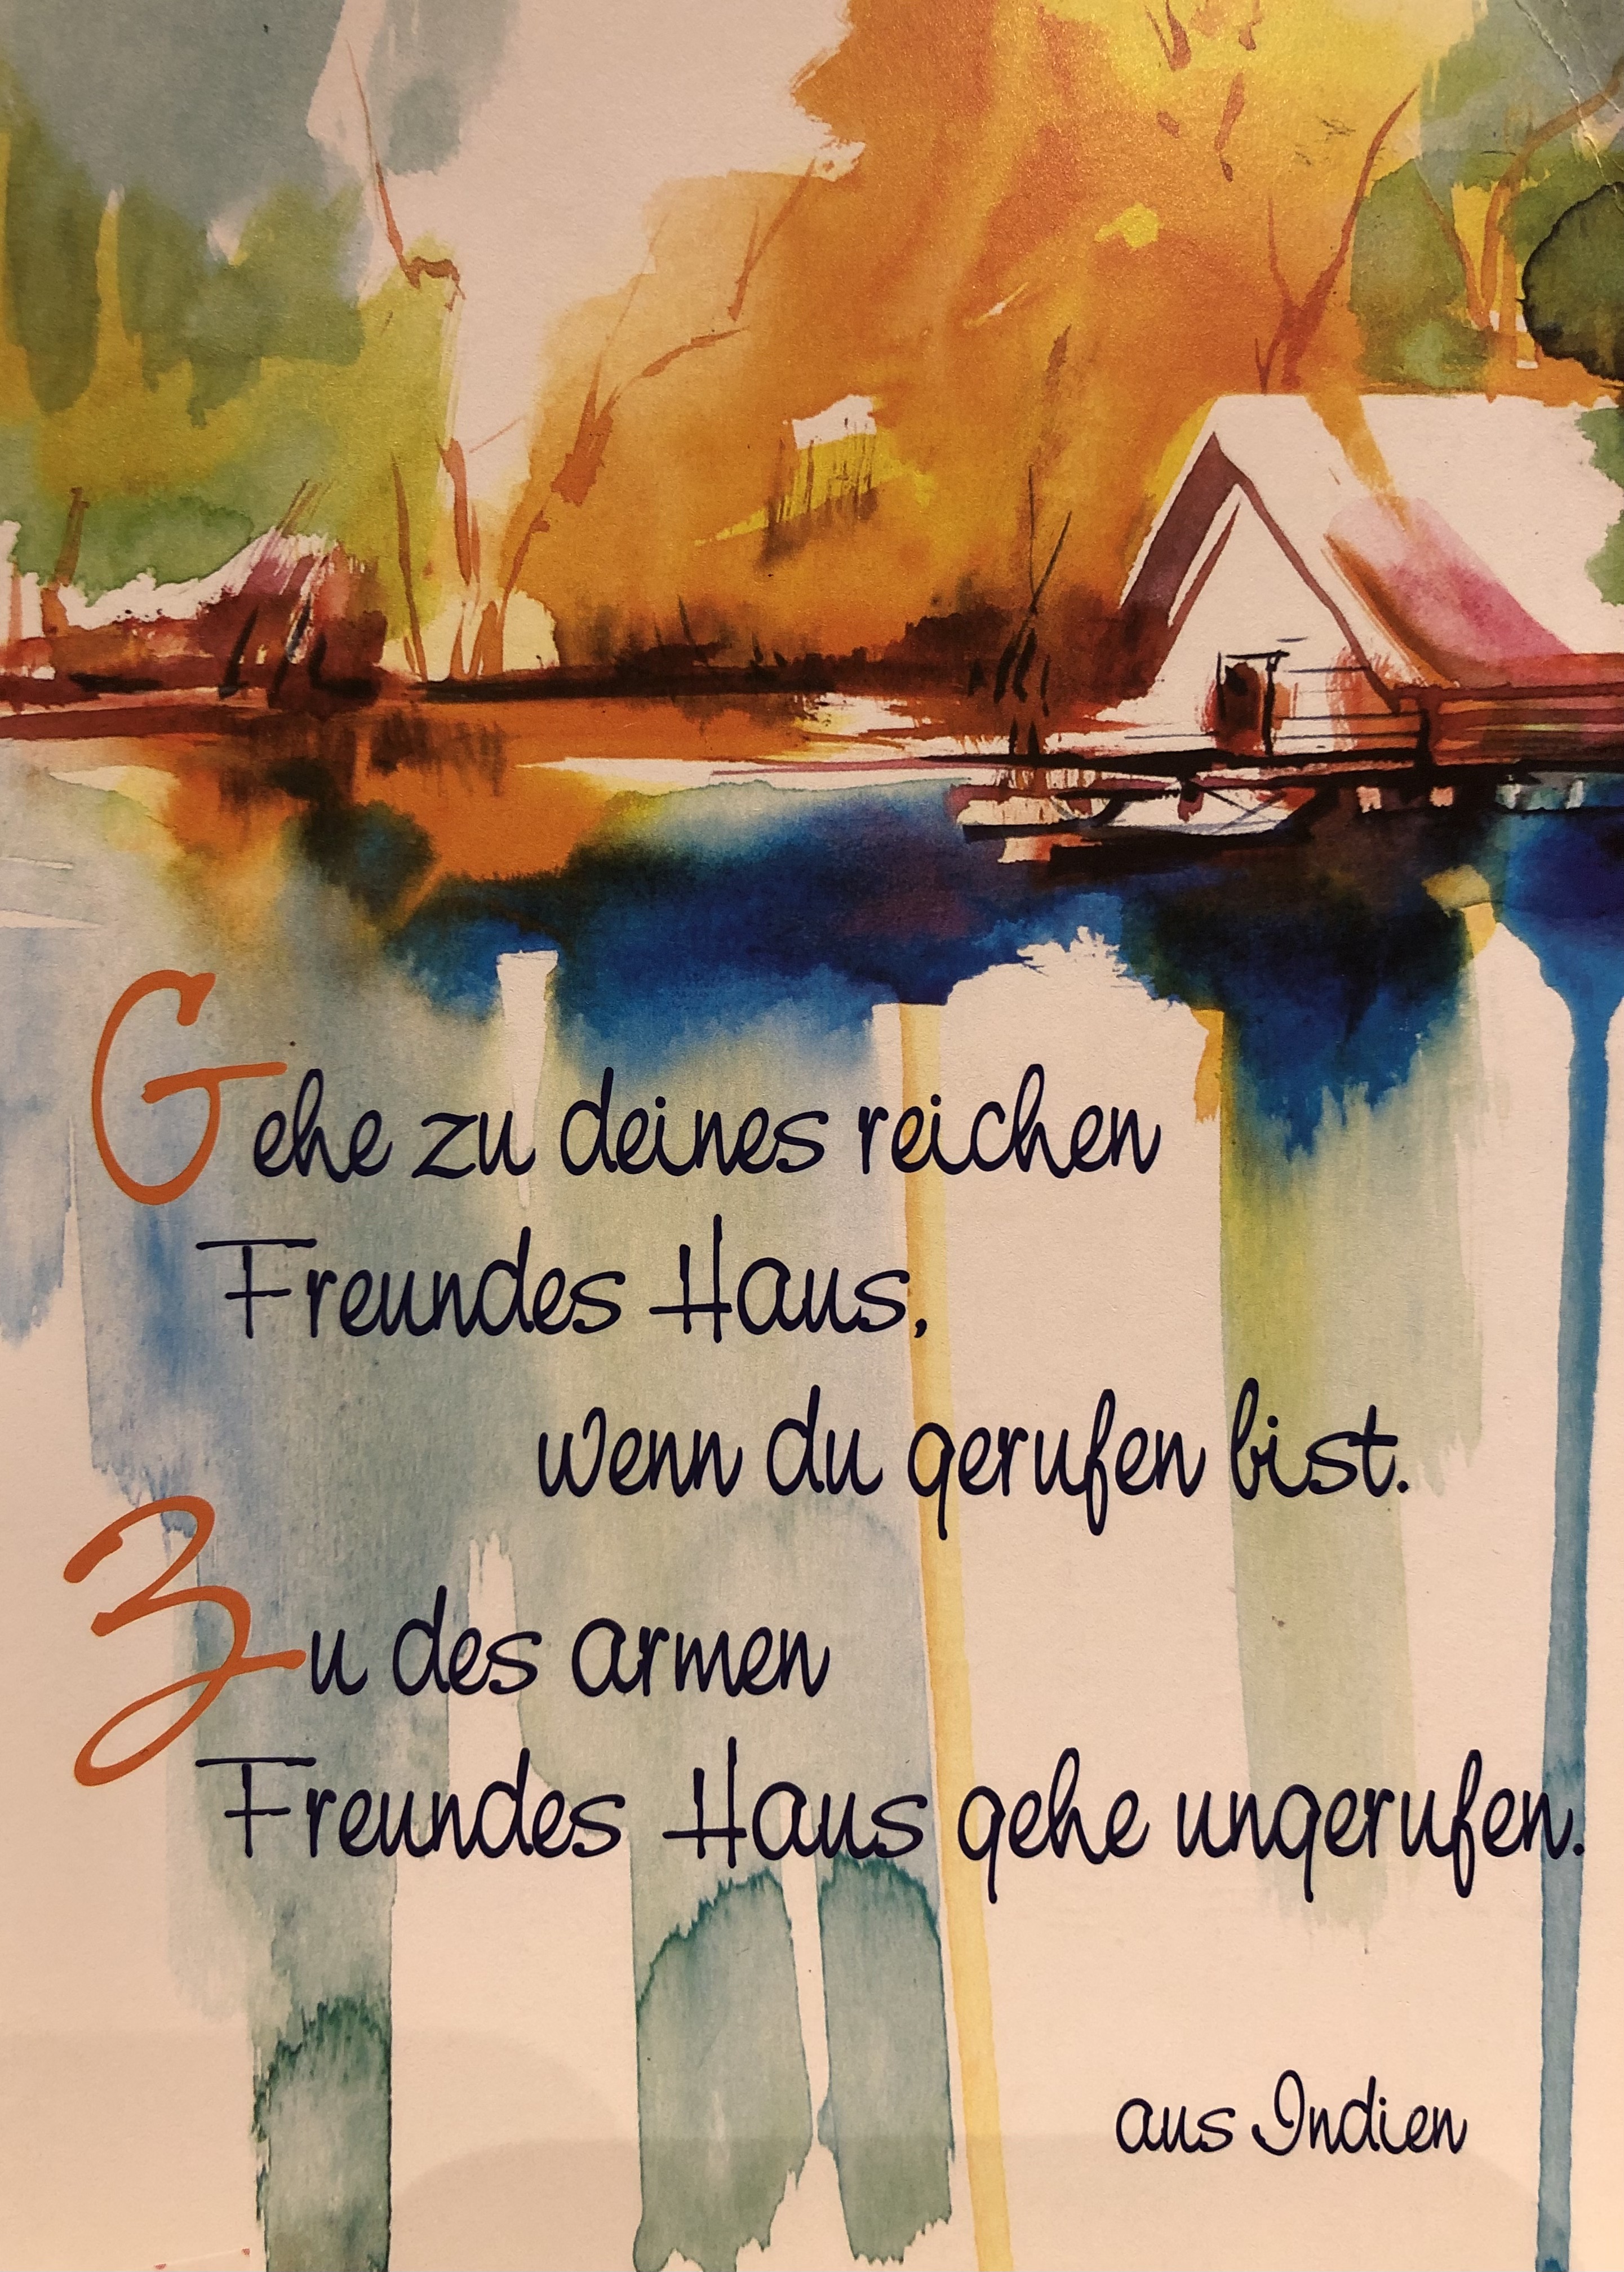 Gehe zu deines reichen
Freundes Haus,
wenn du gerufen bist.
Zu des armen
Freundes Haus gehe ungerufen.
aus Indien